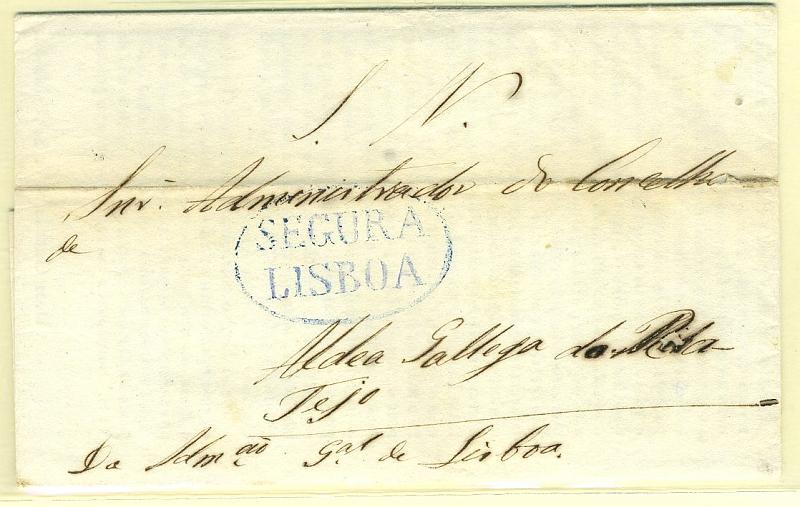 S. N.
Snr. Administrador do Concelho
de
SEGURA
LISBOA
Aldea Gallega do Riba
Tejo
Da Admão. Gal. de Lisboa.